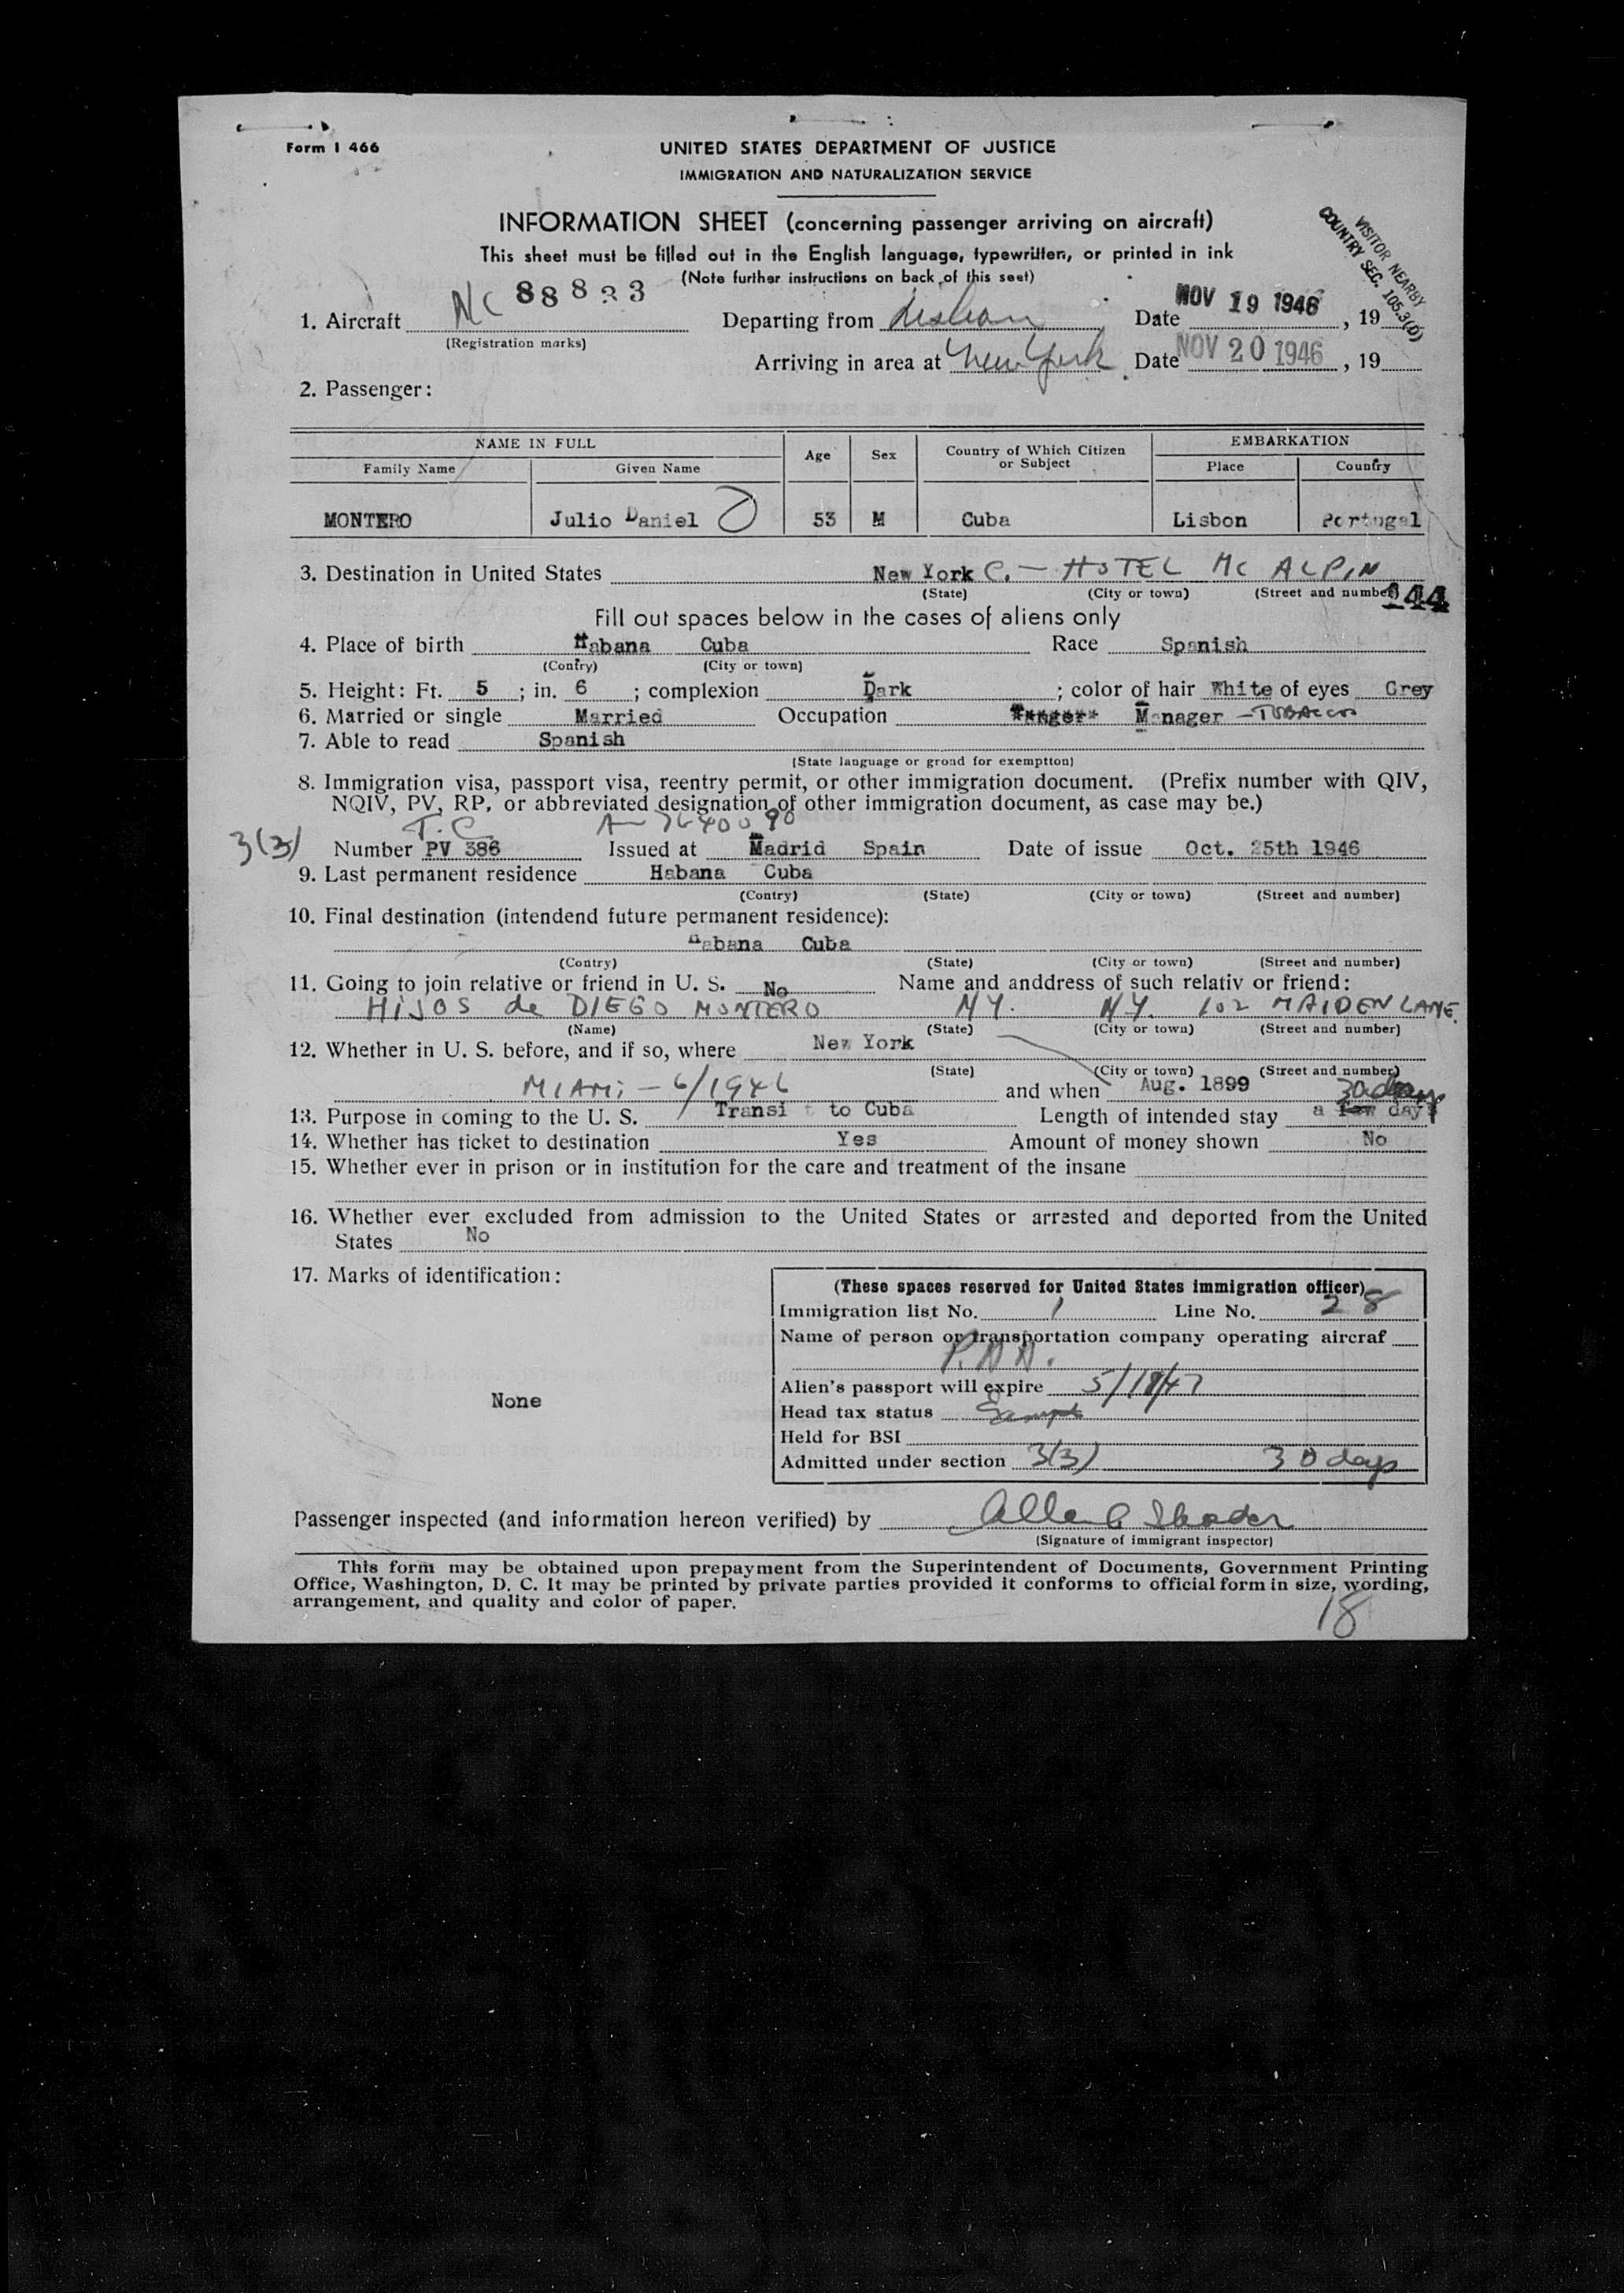 Form I 466
UNITED STATES DEPARTMENT OF JUSTICE
IMMIGRATION AND NATURALIZATION SERVICE
INFORMATION SHEET (concerning passenger arriving on aircraft)
This sheet must be filled out in the English language, typewritten, or printed in ink
(Note further instructions on back of this seet)
VISITOR NEARBY
COUNTRY SEC. 105.3(D)
1. Aircraft NC 88833 Departing from Lisbon Date NOV 19 1946, 19
(Registration marks)
Arriving in area at New York Date NOV 20 1946, 19
2. Passenger:
NAME IN FULL Age Sex Country of Which Citizen or Subject EMBARKATION
Family Name Given Name Place Country
MONTERO Julio Daniel 53 M Cuba Lisbon Portugal
3. Destination in United States New York C. - HOTEL Mc ALPIN
(State) (City or town) (Street and number) 144
Fill out spaces below in the cases of aliens only
4. Place of birth Habana Cuba Race Spanish
(Contry) (City or town)
5. Height: Ft. 5; in. 6; complexion Dark; color of hair White of eyes Grey
6. Married or single Married Occupation Manager - TOBACCO
7. Able to read Spanish
(State language or grond for exemption)
8. Immigration visa, passport visa, reentry permit, or other immigration document. (Prefix number with QIV,
NQIV, PV, RP, or abbreviated designation of other immigration document, as case may be.)
T.C. A-7640090
3(3) Number PV 386 Issued at Madrid Spain Date of issue Oct. 25th 1946
9. Last permanent residence Habana Cuba
(Contry) (State) (City or town) (Street and number)
10. Final destination (intendend future permanent residence):
Habana Cuba
(Contry) (State) (City or town) (Street and number)
11. Going to join relative or friend in U. S. No Name and anddress of such relativ or friend:
HIJOS de DIEGO MONTERO NY. NY. 102 MAIDEN LANE.
(Name) (State) (City or town) (Street and number)
12. Whether in U. S. before, and if so, where New York
(State) (City or town) (Street and number)
MIAMI - 6/1946 and when Aug. 1899
30 days
13. Purpose in coming to the U. S. Transit to Cuba Length of intended stay a few days
14. Whether has ticket to destination Yes Amount of money shown No
15. Whether ever in prison or in institution for the care and treatment of the insane
16. Whether ever excluded from admission to the United States or arrested and deported from the United
States No
17. Marks of identification:
None
(These spaces reserved for United States immigration officer)
Immigration list No. 1 Line No. 28
Name of person or transportation company operating aircraf
P.A.A.
Alien's passport will expire 5/18/47
Head tax status Exempt
Held for BSI
Admitted under section 3(3) 30 days
Passenger inspected (and information hereon verified) by
(Signature of immigrant inspector)
This form may be obtained upon prepayment from the Superintendent of Documents, Government Printing
Office, Washington, D. C. It may be printed by private parties provided it conforms to official form in size, wording,
arrangement, and quality and color of paper.
18